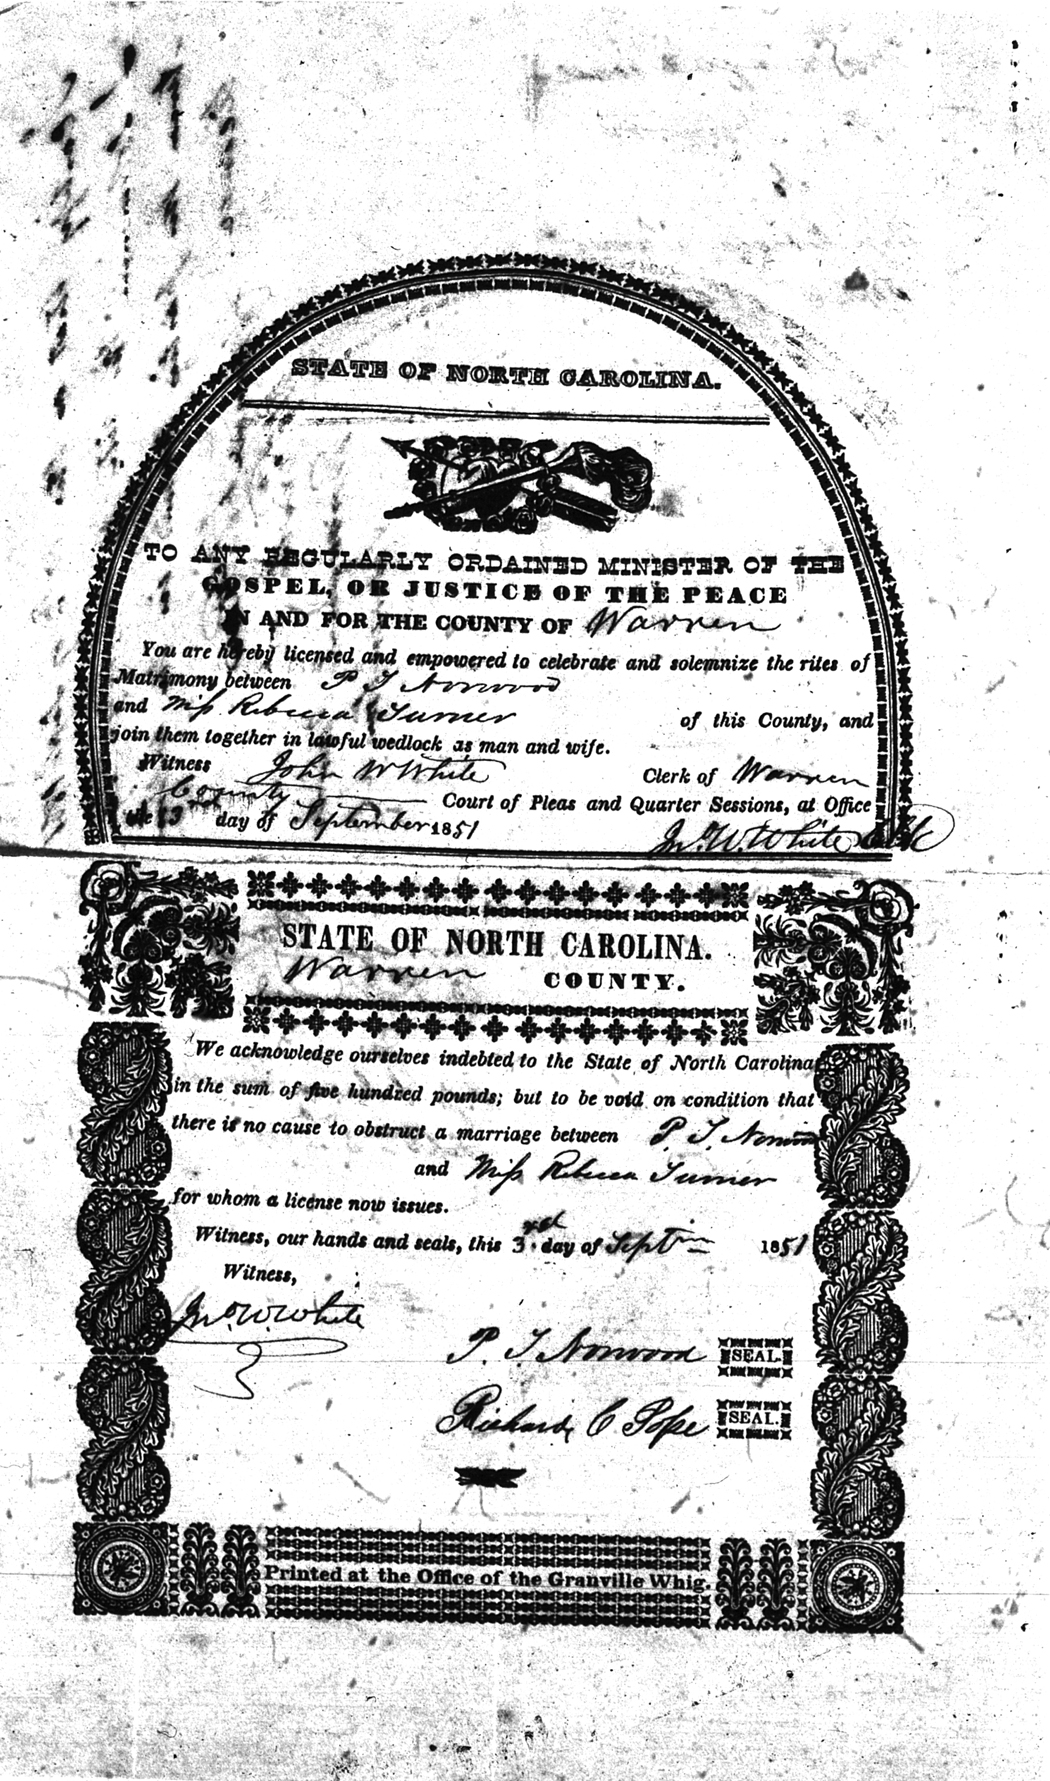 STATE OF NORTH CAROLINA.
TO ANY REGULARLY ORDAINED MINISTER OF THE
GOSPEL, OR JUSTICE OF THE PEACE
IN AND FOR THE COUNTY OF Warren
You are hereby licensed and empowered to celebrate and solemnize the rites of
Matrimony between P T Norwood
and Miss Rebecca Turner of this County, and
join them together in lawful wedlock as man and wife.
Witness John W White Clerk of Warren
County Court of Pleas and Quarter Sessions, at Office
the 3rd day of September 1851
Jno. W. White Clk
STATE OF NORTH CAROLINA.
Warren COUNTY.
We acknowledge ourselves indebted to the State of North Carolina
in the sum of five hundred pounds; but to be void on condition that
there is no cause to obstruct a marriage between P. T. Norwood
and Miss Rebecca Turner
for whom a license now issues.
Witness, our hands and seals, this 3rd day of Septm 1851
Witness,
Jno. W. White
P. T. Norwood SEAL.
Richard C Pope SEAL.
Printed at the Office of the Granville Whig.